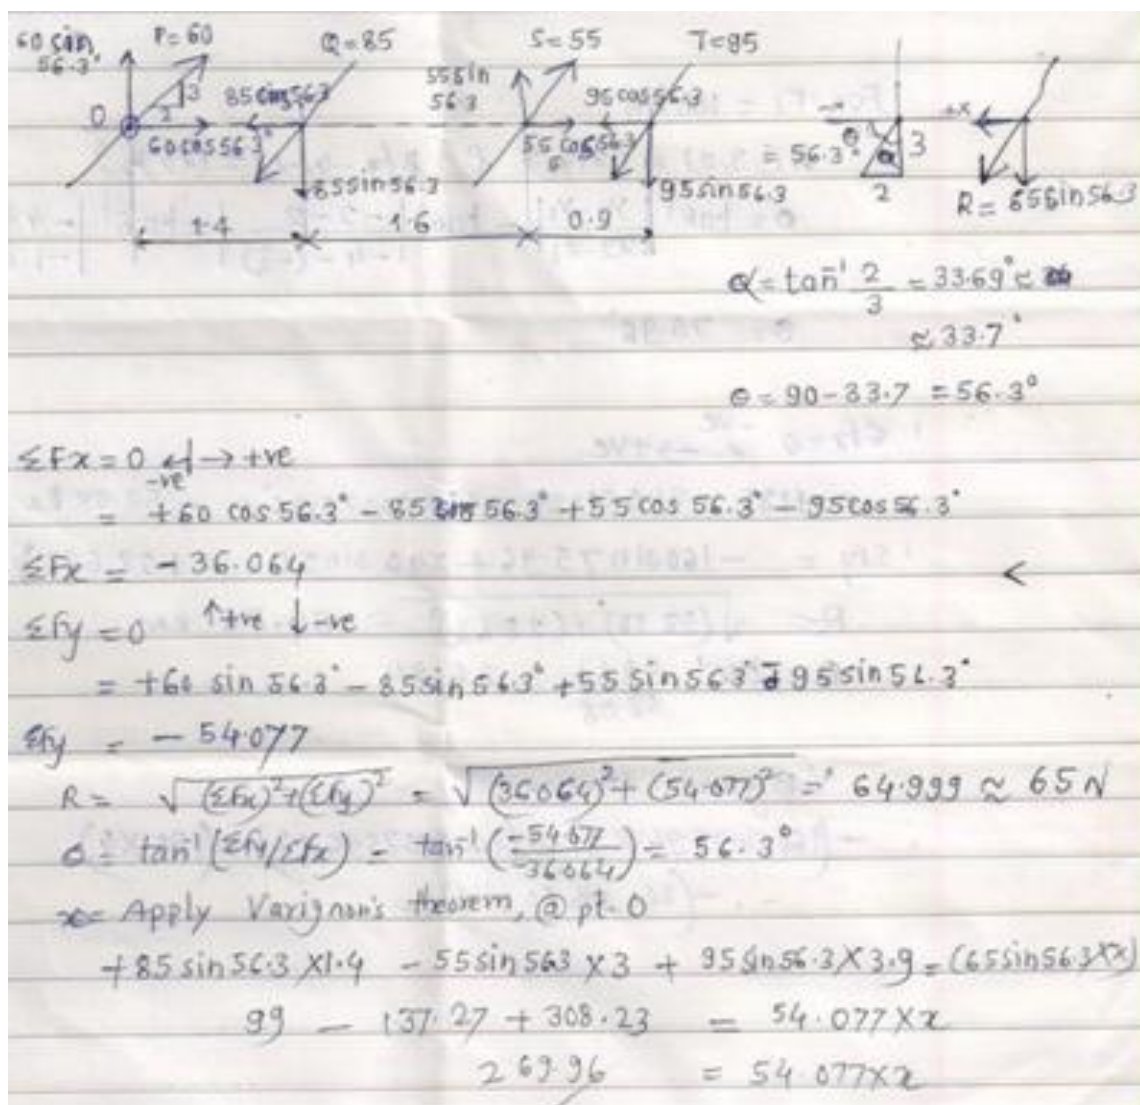 60 sin 56.3° P=60 Q=85 S=55 T=95
55 sin 56.3
3
2
0
85 cos 56.3
95 cos 56.3
60 cos 56.3
55 cos 56.3
85 sin 56.3
95 sin 56.3
θ = 56.3°
α
3
2
+x
R = 65 sin 56.3
1.4 1.6 0.9
α = tan⁻¹ 2/3 = 33.69° ≈
≈ 33.7°
θ = 90 - 33.7 = 56.3°
ΣFx = 0 ← -ve → +ve
= +60 cos 56.3° - 85 56.3° + 55 cos 56.3° - 95 cos 56.3°
ΣFx = - 36.064
<
Σfy = 0 ↑+ve ↓-ve
= +60 sin 56.3° - 85 sin 56.3° + 55 sin 56.3° - 95 sin 56.3°
Σfy = - 54.077
R = √(Σfx)²+(Σfy)² = √(36064)²+(54.077)² = 64.999 ≈ 65 N
θ = tan⁻¹ (Σfy/Σfx) = tan⁻¹ (-54.077/-36064) = 56.3°
Apply Varignon's theorem, @ pt. O
+ 85 sin 56.3 X1.4 - 55 sin 563 X 3 + 95 sin 56.3 X 3.9 = (65 sin 56.3 X x)
99 - 137.27 + 308.23 = 54.077 X x
269.96 = 54.077 X x